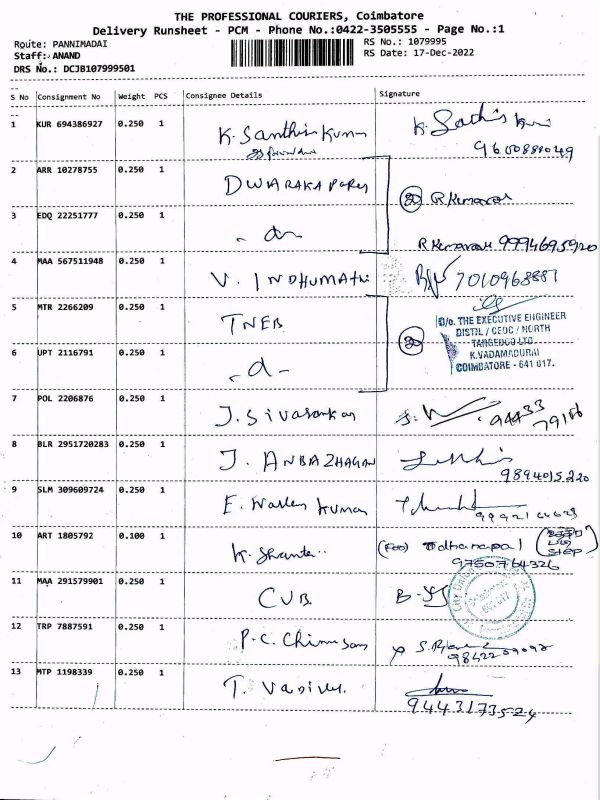 THE PROFESSIONAL COURIERS, Coimbatore
Delivery Runsheet - PCM - Phone No.:0422-3505555 - Page No.:1
Route: PANNIMADAI
RS No.: 1079995
Staff: ANAND
RS Date: 17-Dec-2022
DRS No.: DCJB107999501
S No Consignment No Weight PCS Consignee Details Signature
1 KUR 694386927 0.250 1 K. Santhis Kumar
2 ARR 10278755 0.250 1 DWARAKA
20 R Kumaran
3 EDQ 22251777 0.250 1 - do -
R Kumaran 9994695920
4 MAA 567511948 0.250 1 V. INDHUMATHI 7010968881
5 MTR 2266209 0.250 1 TNEB
O/o. THE EXECUTIVE ENGINEER
DISTN / CEDC / NORTH
TANGEDCO LTD
K.VADAMADURAI
COIMBATORE - 641 017.
6 UPT 2116791 0.250 1 - do -
7 POL 2206876 0.250 1 J. Sivasankar 94433
79166
8 BLR 2951720283 0.250 1 J. ANBAZHAGAN
9894015220
9 SLM 309609724 0.250 1 E. Kumar
10 ART 1805792 0.100 1 K. (For) dhanapal
9750764326
11 MAA 291579901 0.250 1 CUB
12 TRP 7887591 0.250 1 P.C. Chinnasamy
13 MTP 1198339 0.250 1 T. Vadivel